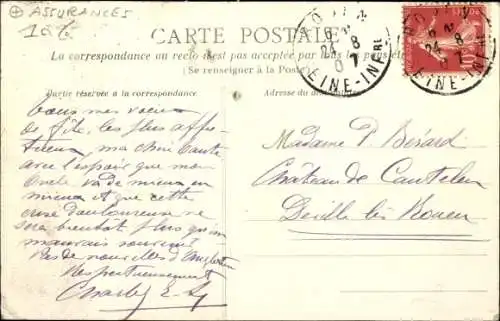 ASSURANCES
CARTE POSTALE
La correspondance au recto n'est pas acceptée par tous les pays étrangers
(Se renseigner à la Poste)
Partie réservée à la correspondance
Adresse du destinataire
24 8
07
SEINE-INFRE
24 8
07
SEINE-INFRE
10
Tous mes vœux
de fête, les plus affec-
tueux, ma chère Tante
avec l'espoir que mon
Oncle va de mieux en
mieux et que cette
crise douloureuse ne
sera bientôt plus qu'un
mauvais souvenir
Pas de nouvelles d'Angleterre
Respectueusement
Charles
Madame P. Bérard
Château de Canteleu
Déville lès Rouen